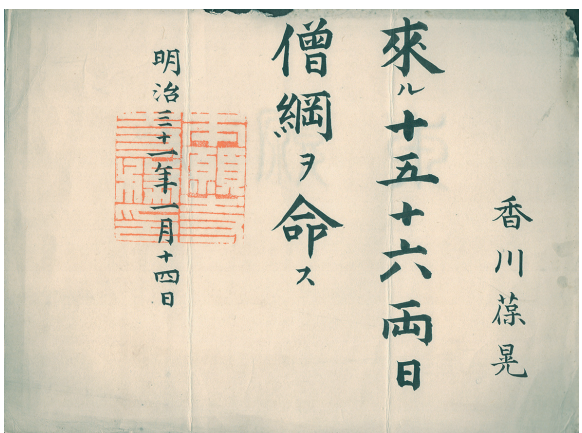 香川葆晃
來ル十五十六両日
僧綱ヲ命ス
明治三十一年一月十四日
本願寺